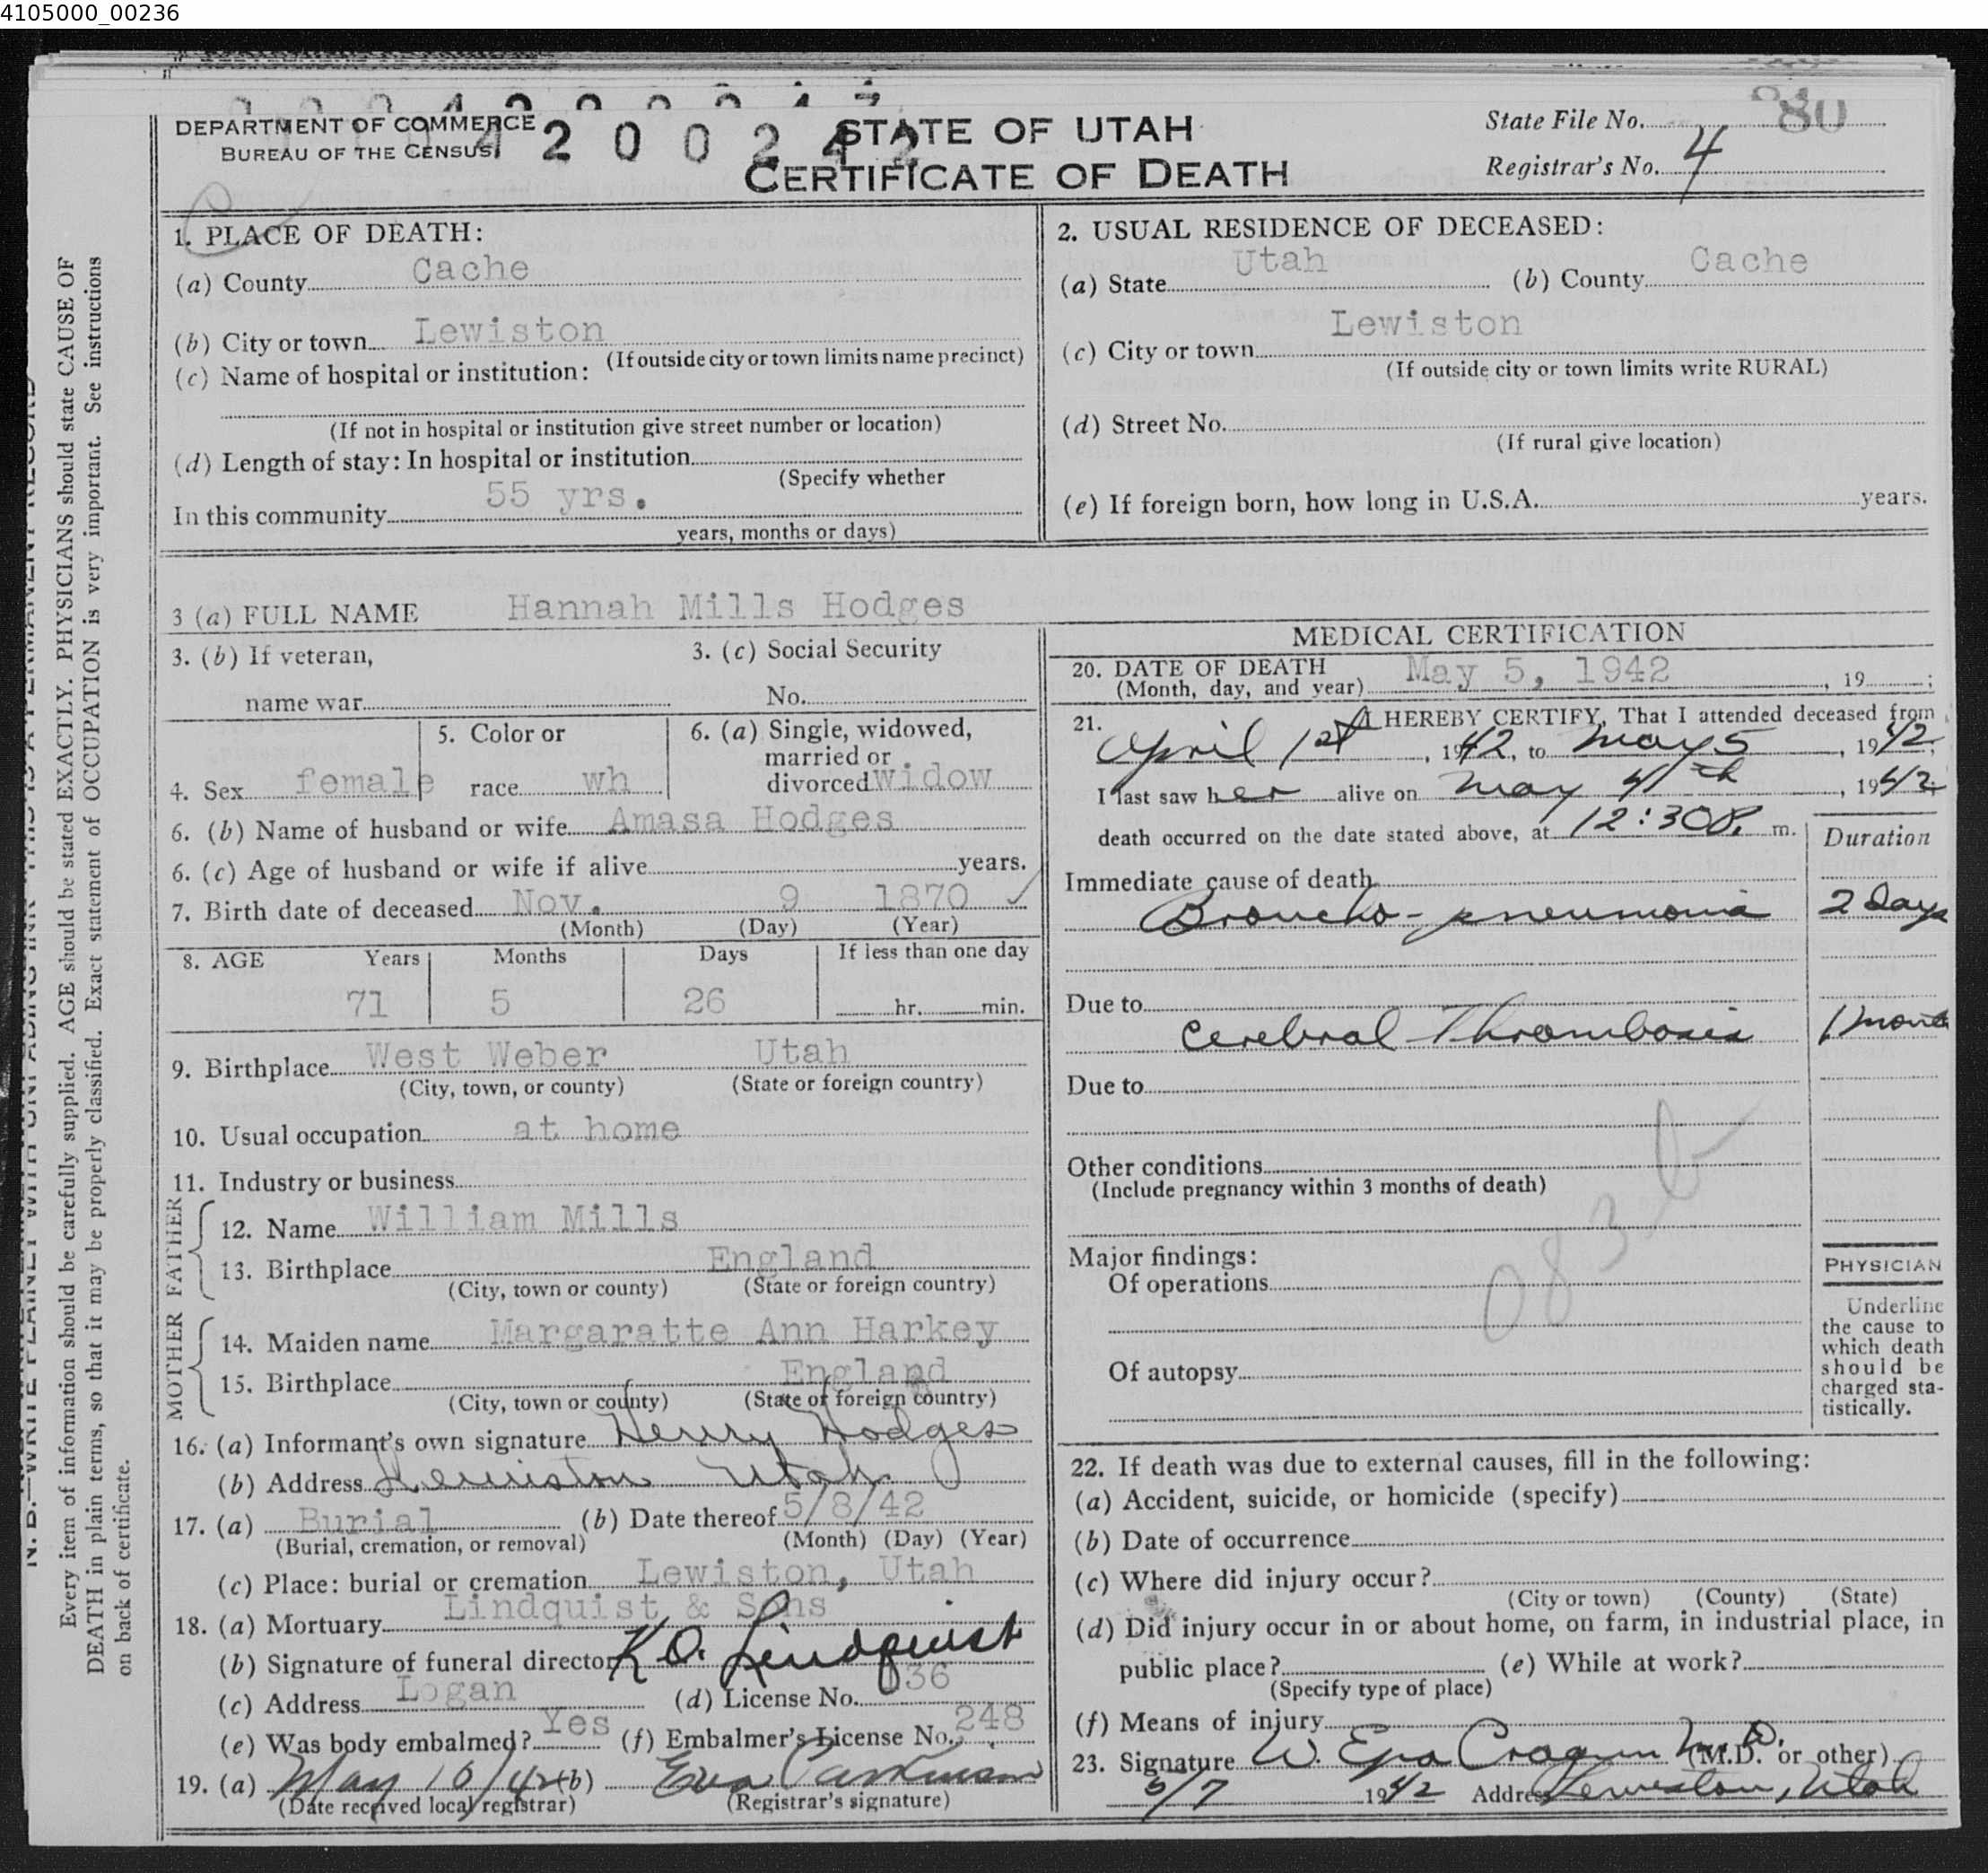 4105000_00236
DEPARTMENT OF COMMERCE
BUREAU OF THE CENSUS
STATE OF UTAH
CERTIFICATE OF DEATH
State File No. 80
Registrar's No. 4
1. PLACE OF DEATH:
(a) County Cache
(b) City or town Lewiston
(If outside city or town limits name precinct)
(c) Name of hospital or institution:
(If not in hospital or institution give street number or location)
(d) Length of stay: In hospital or institution
(Specify whether
In this community 55 yrs.
years, months or days)
2. USUAL RESIDENCE OF DECEASED:
(a) State Utah (b) County Cache
(c) City or town Lewiston
(If outside city or town limits write RURAL)
(d) Street No.
(If rural give location)
(e) If foreign born, how long in U.S.A. years.
3 (a) FULL NAME Hannah Mills Hodges
3. (b) If veteran,
name war
3. (c) Social Security
No.
4. Sex female
5. Color or
race wh
6. (a) Single, widowed,
married or
divorced widow
6. (b) Name of husband or wife Amasa Hodges
6. (c) Age of husband or wife if alive years.
7. Birth date of deceased Nov. 9 1870
(Month) (Day) (Year)
8. AGE Years Months Days If less than one day
71 5 26 hr. min.
9. Birthplace West Weber Utah
(City, town, or county) (State or foreign country)
10. Usual occupation at home
11. Industry or business
FATHER
12. Name William Mills
13. Birthplace England
(City, town or county) (State or foreign country)
MOTHER
14. Maiden name Margaratte Ann Harkey
15. Birthplace England
(City, town or county) (State or foreign country)
16. (a) Informant's own signature Henry Hodges
(b) Address Lewiston Utah.
17. (a) Burial (b) Date thereof 5/8/42
(Burial, cremation, or removal) (Month) (Day) (Year)
(c) Place: burial or cremation Lewiston, Utah
18. (a) Mortuary Lindquist & Sons
(b) Signature of funeral director K.O. Lindquist
(c) Address Logan (d) License No. 136
(e) Was body embalmed? Yes (f) Embalmer's License No. 248
19. (a) May 10/42 (b) Eva Parkinson
(Date received local registrar) (Registrar's signature)
MEDICAL CERTIFICATION
20. DATE OF DEATH May 5, 1942
(Month, day, and year) , 19 ;
21. I HEREBY CERTIFY, That I attended deceased from
April 1st, 1942, to May 5, 1942;
I last saw her alive on May 4th, 1942;
death occurred on the date stated above, at 12:30 P. m.
Duration
Immediate cause of death
Broncho-pneumonia 2 Days
Due to
Cerebral Thrombosis 1 month
Due to
Other conditions
(Include pregnancy within 3 months of death)
083 b
Major findings:
Of operations
Of autopsy
PHYSICIAN
Underline
the cause to
which death
should be
charged sta-
tistically.
22. If death was due to external causes, fill in the following:
(a) Accident, suicide, or homicide (specify)
(b) Date of occurrence
(c) Where did injury occur?
(City or town) (County) (State)
(d) Did injury occur in or about home, on farm, in industrial place, in
public place? (e) While at work?
(Specify type of place)
(f) Means of injury
23. Signature W. Ezra Cragun M.D. (M.D. or other)
5/7 1942 Address Lewiston, Utah
Every item of information should be carefully supplied. AGE should be stated EXACTLY. PHYSICIANS should state CAUSE OF
DEATH in plain terms, so that it may be properly classified. Exact statement of OCCUPATION is very important. See instructions
on back of certificate.